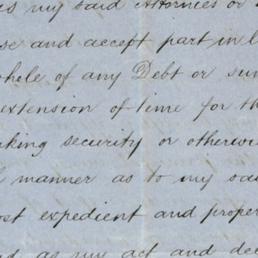 my said Attornies or
and accept part in l
hole of any Debt or sum
extension of time for th
king security or otherwi
manner as to my sai
ost expedient and proper
as my act and dee